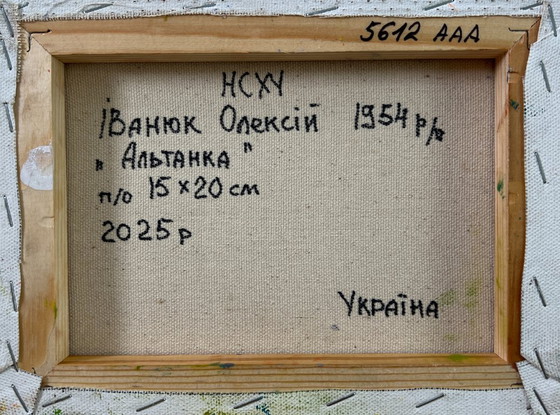 5612 ААА
НСХУ
Іванюк Олексій 1954 р/н
„Альтанка"
п/о 15×20 см
2025р
Україна